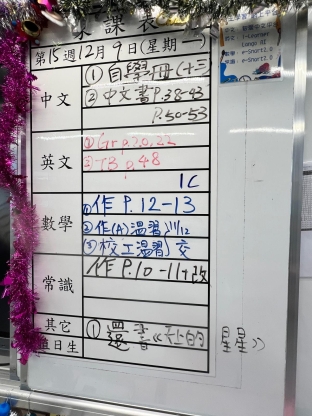 家課表
第15週12月9日(星期一)
中文
①自學冊(十三)
②中文書P.38-43
P.50-53
英文
①Gr p.20,22
②TB p.48
1C
數學
①作P.12-13
②作(A)溫習 11/12
③校工溫習 交
常識
作P.10-11+改
其它
①還書《天上的星星》
值日生
i-Learner